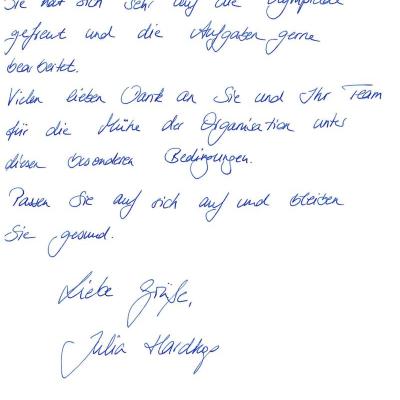 Sie hat sich sehr auf die Olympiade
gefreut und die Aufgaben gerne
bearbeitet.
Vielen lieben Dank an Sie und Ihr Team
für die Mühe der Organisation unter
diesen besonderen Bedingungen.
Passen Sie auf sich auf und bleiben
Sie gesund.
Liebe Grüße,
Julia